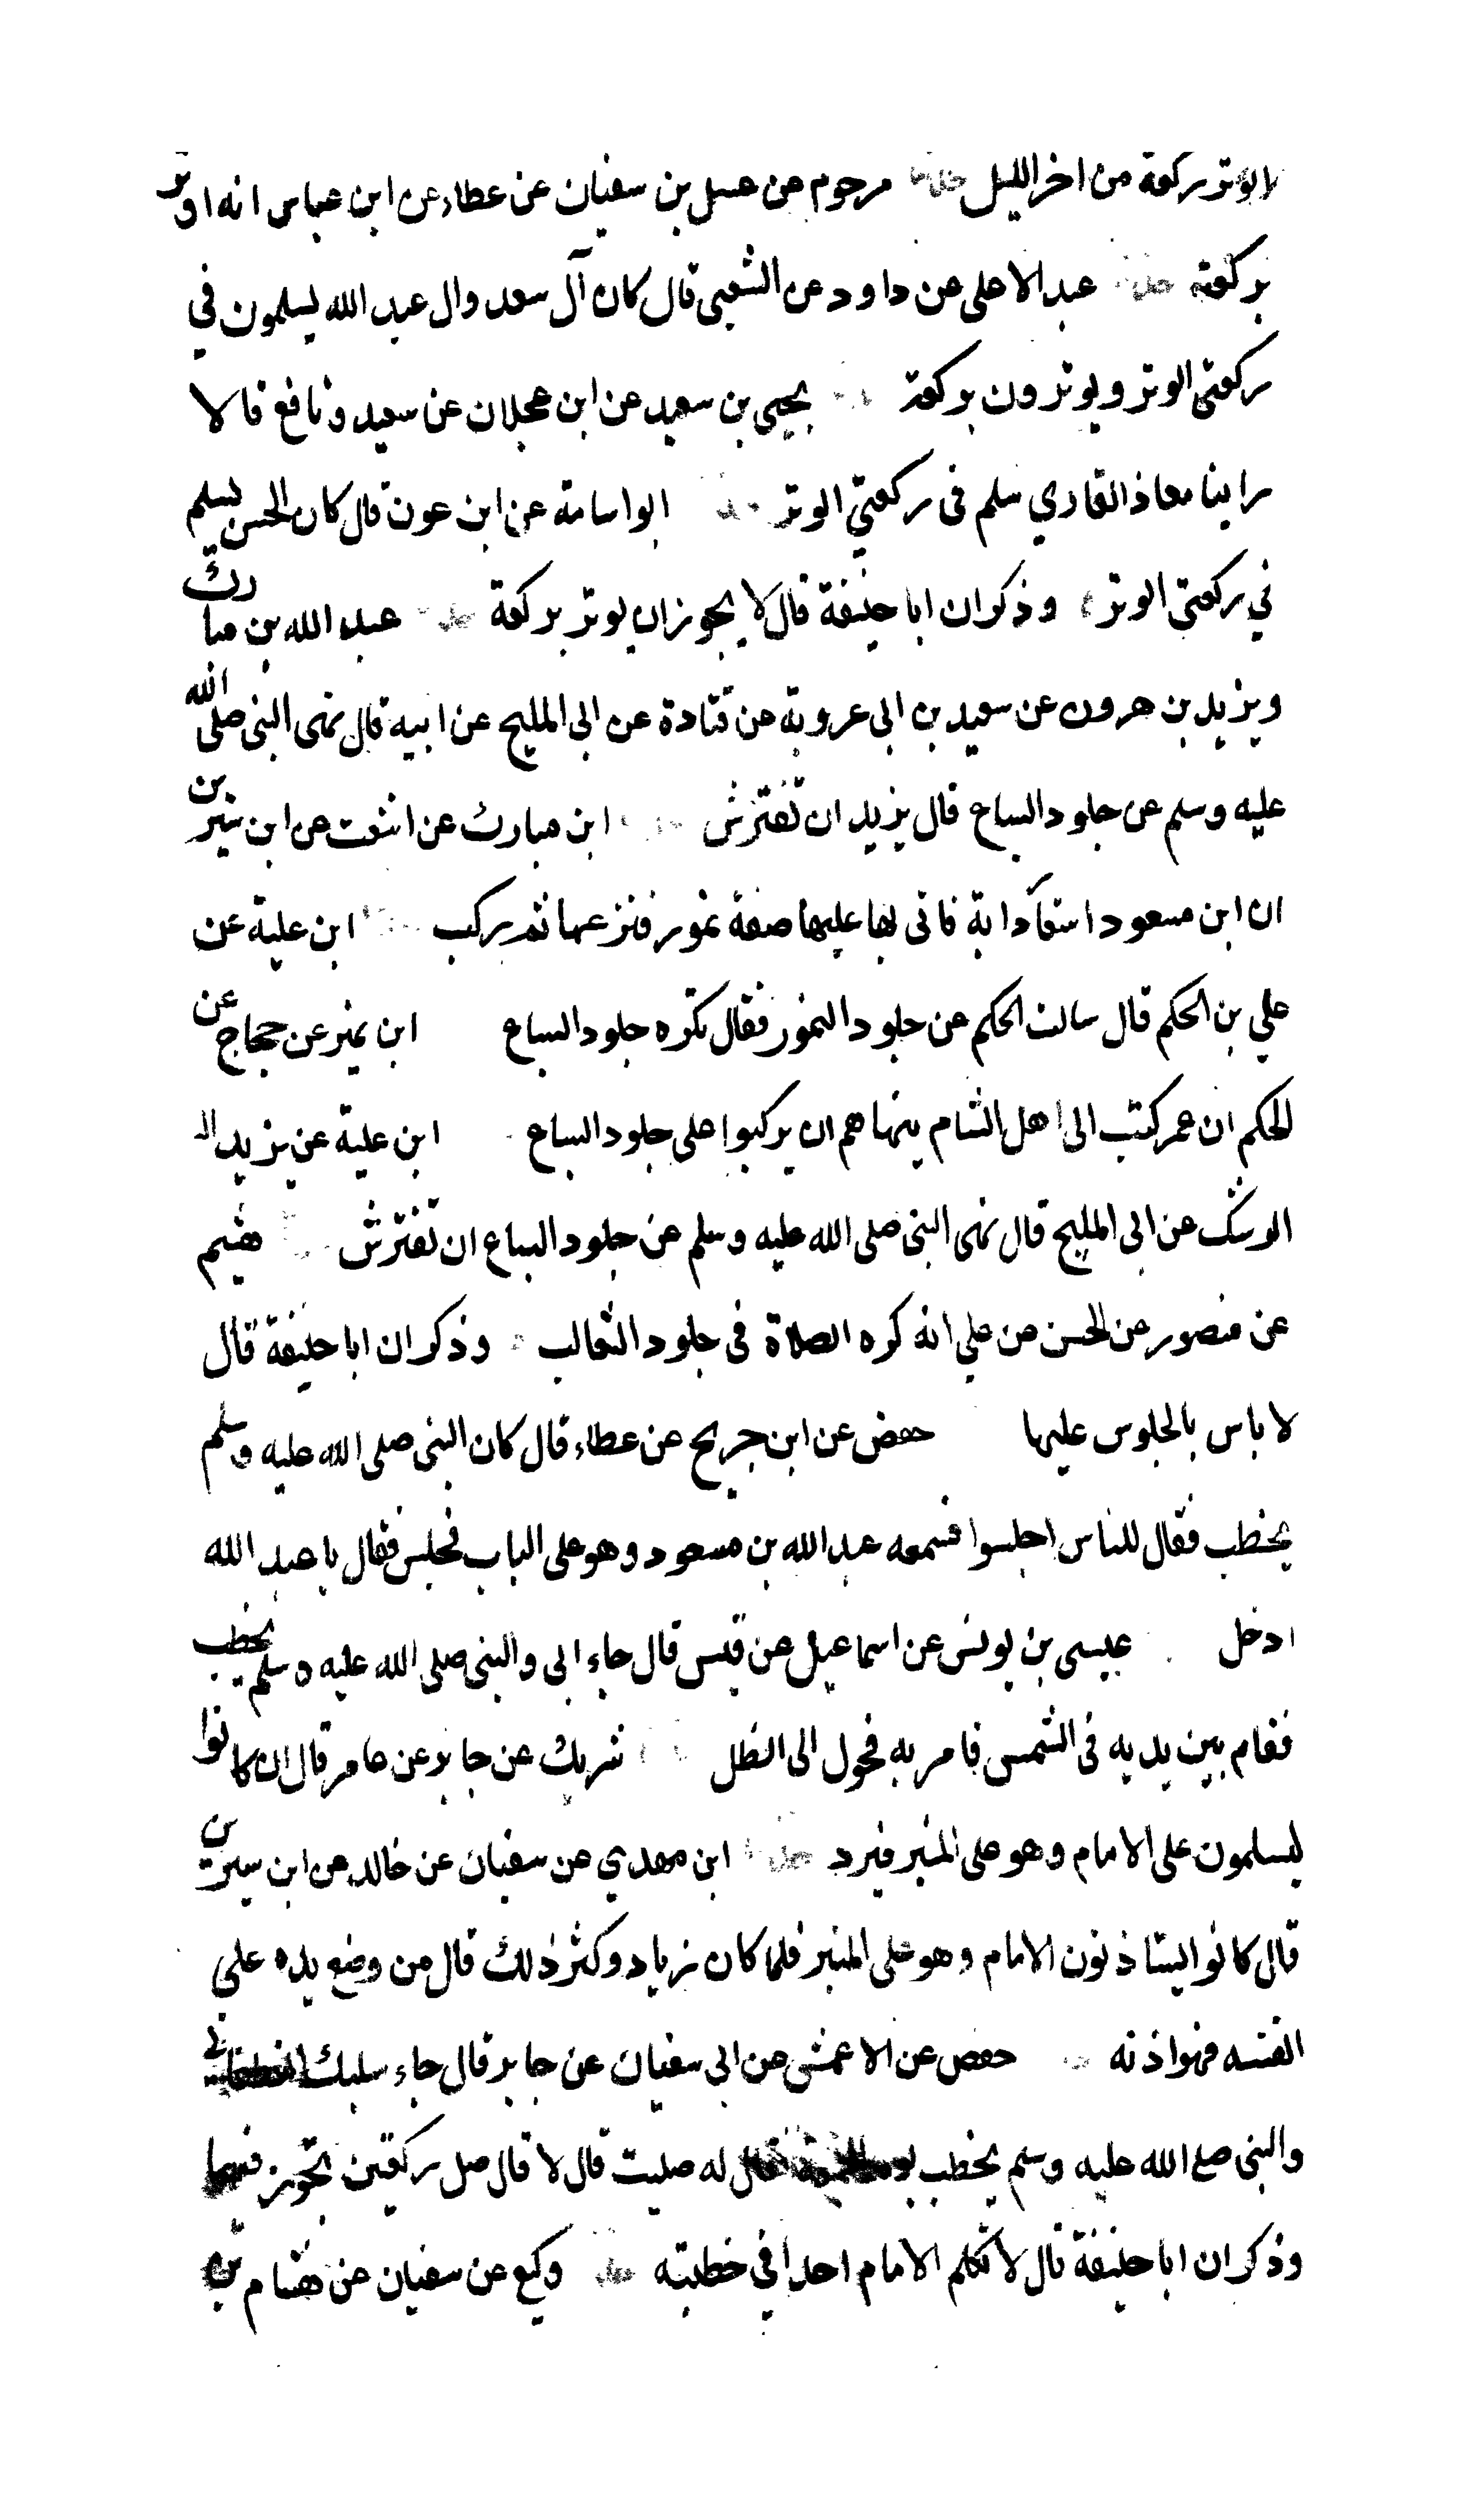 لا يوتر بركعة من اخر الليل حدثنا مرحوم عن عسل بن سفيان عن عطاء عن ابن عباس انه اوتر
بركعة حدثنا عبد الاعلى عن داود عن الشعبى قال كان آل سعد وال عبد الله يسلمون في
ركعتى الوتر ويوترون بركعة يحيى بن سعيد عن ابن عجلان عن سعيد ونافع قالا
راينا معاذ القاري سلم فى ركعتي الوتر ابو اسامة عن ابن عون قال كان الحسن يسلم
في ركعتى الوتر وذكر ان ابا حنيفة قال لا يجوز ان يوتر بركعة عبد الله بن مبارك
ويزيد بن هرون عن سعيد بن ابى عروبة عن قتادة عن ابى المليح عن ابيه قال نهى النبى صلى الله
عليه وسلم عن جلود السباع قال يزيد ان تفترش ابن مبارك عن اشعث عن ابن سيرين
ان ابن مسعود استعار دابة فاتى بها عليها صفة نمور فنزعها ثم ركب ابن علية عن
علي بن الحكم قال سالت الحكم عن جلود النمور فقال تكره جلود السباع ابن نمير عن حجاج عن
الحكم ان عمر كتب الى اهل الشام ينهاهم ان يركبوا على جلود السباع ابن علية عن يزيد ال
الرشك عن ابى المليح قال نهى النبى صلى الله عليه وسلم عن جلود السباع ان تفترش هشيم
عن منصور عن الحسن عن علي انه كره الصلاة فى جلود الثعالب وذكر ان ابا حنيفة قال
لا باس بالجلوس عليها حفص عن ابن جريج عن عطاء قال كان النبى صلى الله عليه وسلم
يخطب فقال للناس اجلسوا فسمعه عبد الله بن مسعود وهو على الباب فجلس فقال يا عبد الله
ادخل عيسى بن يونس عن اسماعيل عن قيس قال جاء ابى والنبى صلى الله عليه وسلم يخطب
فقام بين يديه فى الشمس فامر به فحول الى الظل شريك عن جابر عن عامر قال ان كانوا
ليسلمون على الامام وهو على المنبر فيرد حدثنا ابن مهدي عن سفيان عن خالد عن ابن سيرين
قال كانوا يستاذنون الامام وهو على المنبر فلما كان زياد وكثر ذلك قال من وضع يده على
انفسه فهو اذنه حفص عن الاعمش عن ابى سفيان عن جابر قال جاء سليك الغطفانى
والنبى صلع الله عليه وسلم يخطب يوم الجمعة فقال له صليت قال لا قال صل ركعتين تجوز فيهما
وذكر ان ابا حنيفة قال لا تكلم الامام احدا في خطبته حدثنا وكيع عن سفيان عن هشام بن